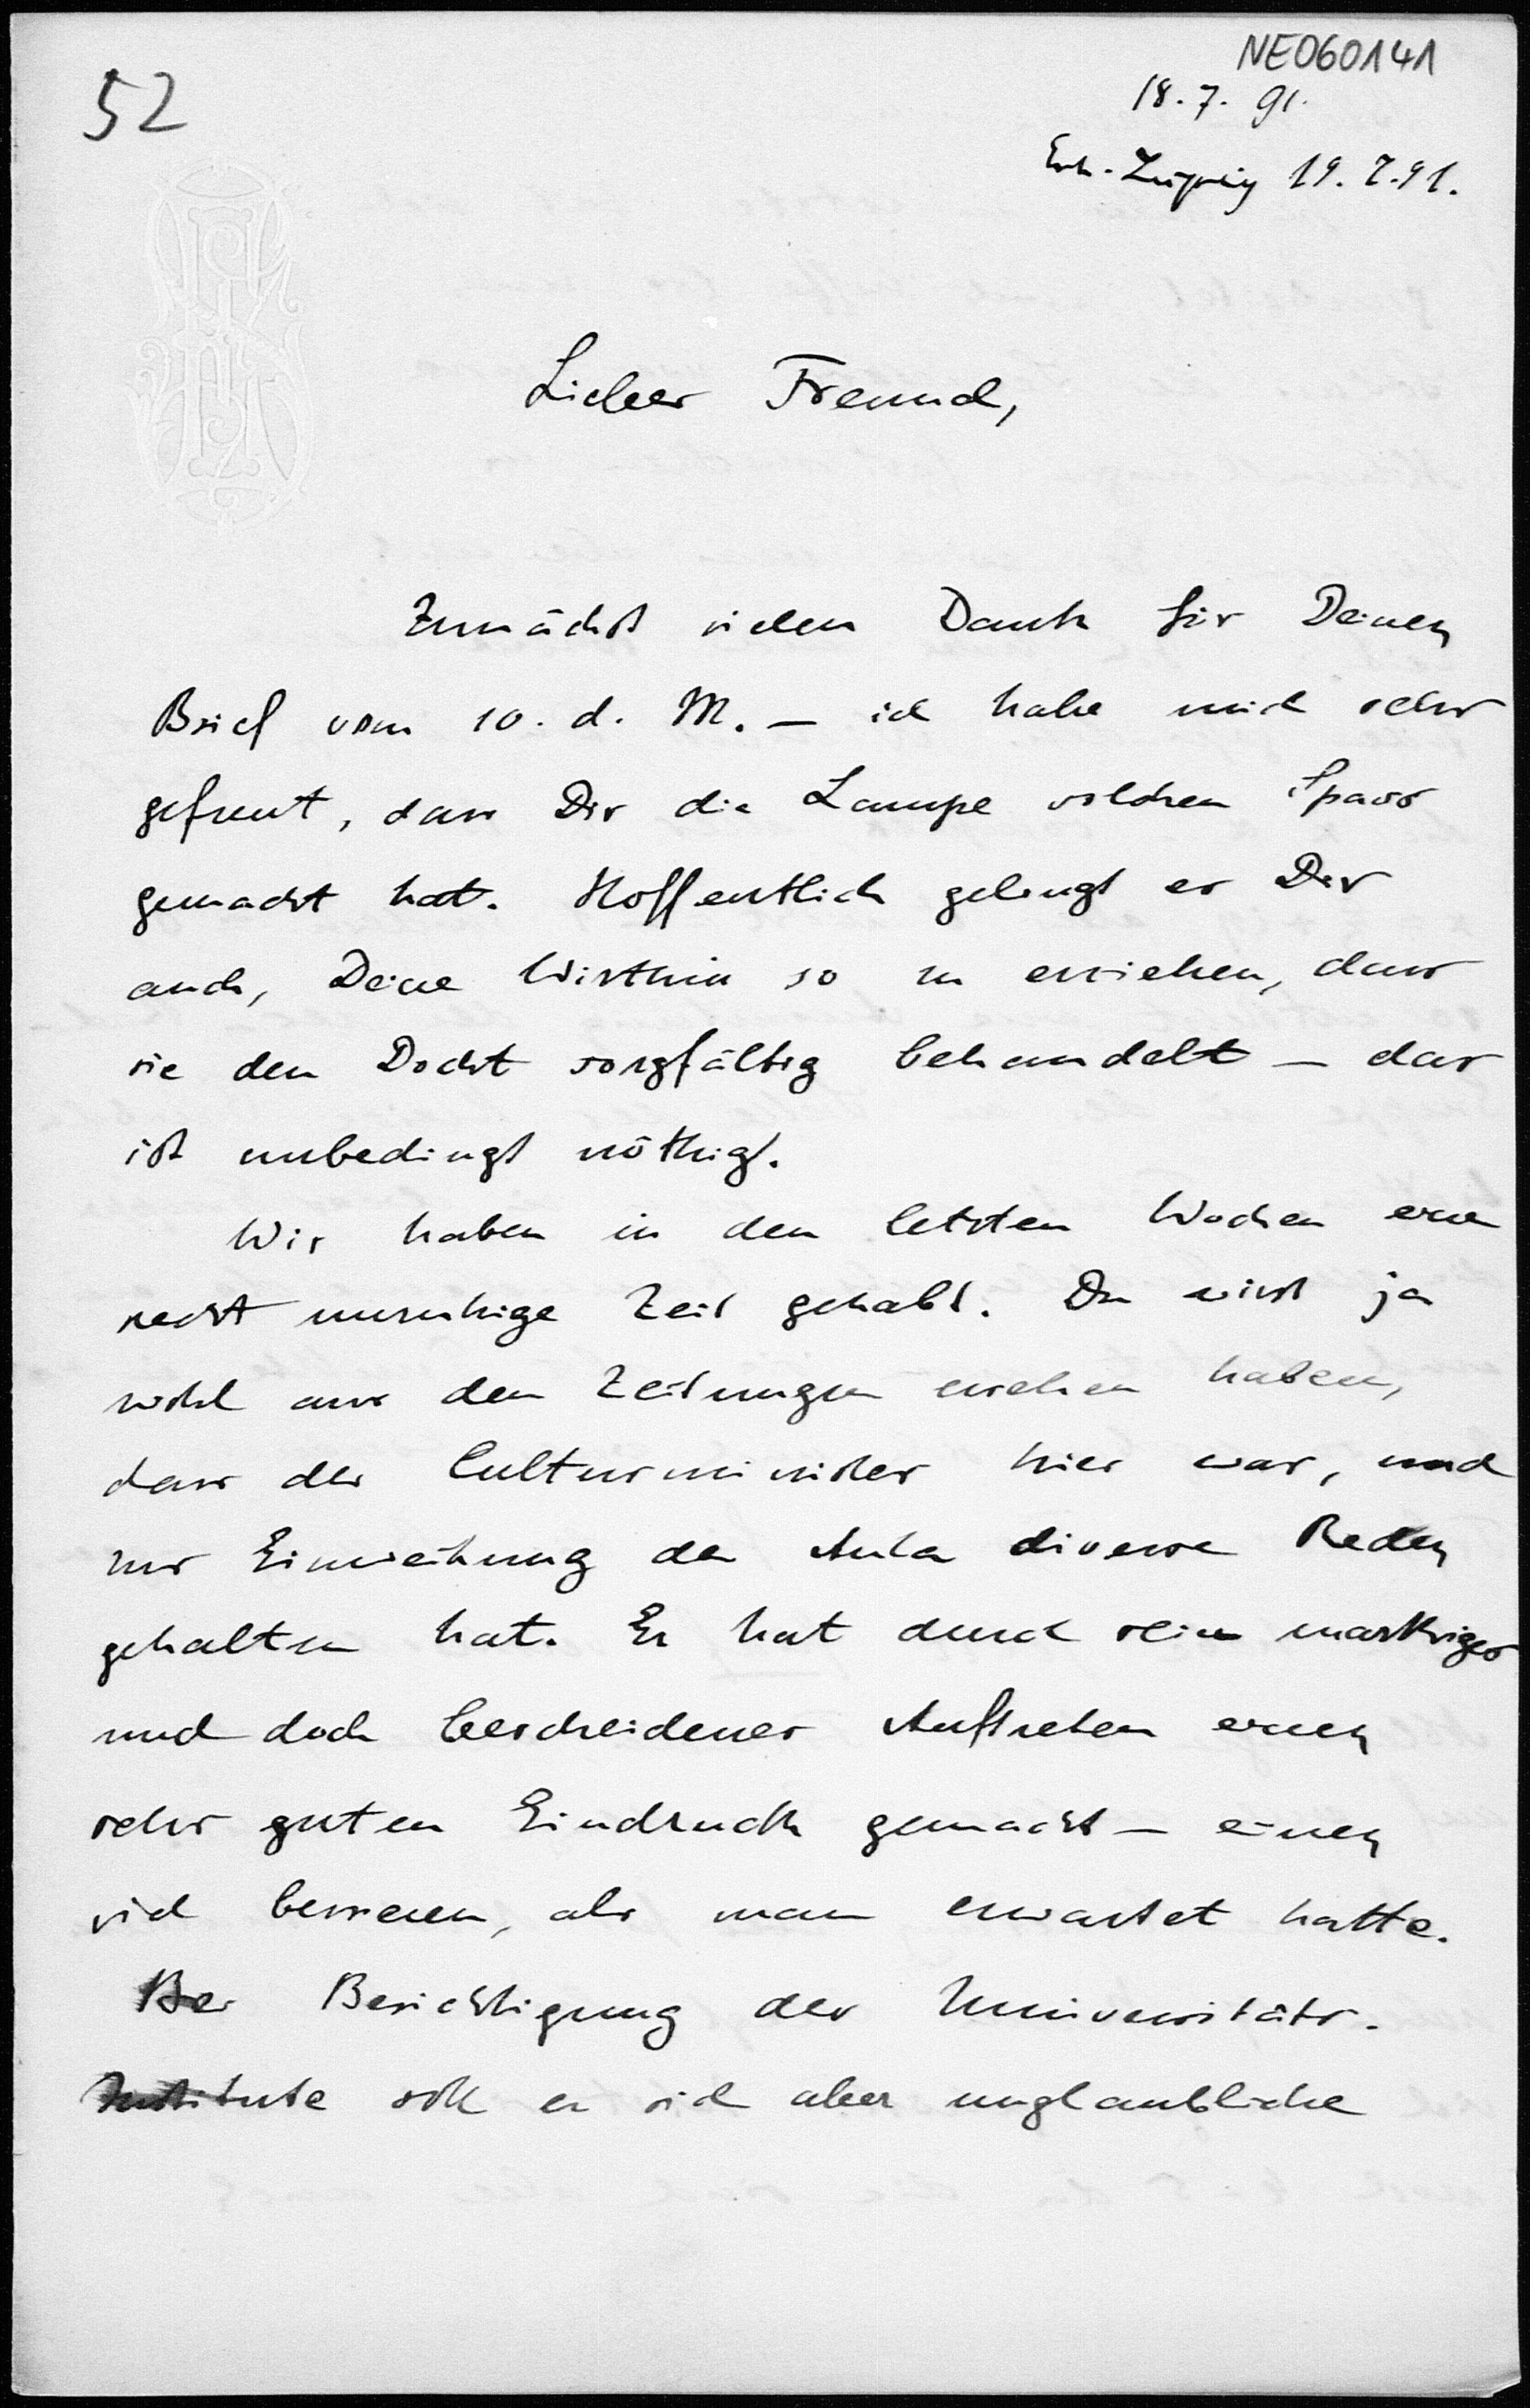 NE060141
52
18. 7. 91.
Erh. Leipzig 19. 7. 91.
Lieber Freund,
Zunächst vielen Dank für Deinen
Brief vom 10. d. M. – ich habe mich sehr
gefreut, dass Dir die Lampe solchen Spass
gemacht hat. Hoffentlich gelingt es Dir
auch, Deine Wirthin so zu erziehen, dass
sie den Docht sorgfältig behandelt – das
ist unbedingt nöthig.
Wir haben in den letzten Wochen eine
recht unruhige Zeit gehabt. Du wirst ja
wohl aus den Zeitungen ersehen haben,
dass der Cultusminister hier war, und
zur Einweihung der Aula diverse Reden
gehalten hat. Er hat durch sein markiges
und doch bescheidenes Auftreten einen
sehr guten Eindruck gemacht – einen
viel besseren, als man erwartet hatte.
Bei Besichtigung der Universitäts-
Institute soll er sich aber unglaubliche